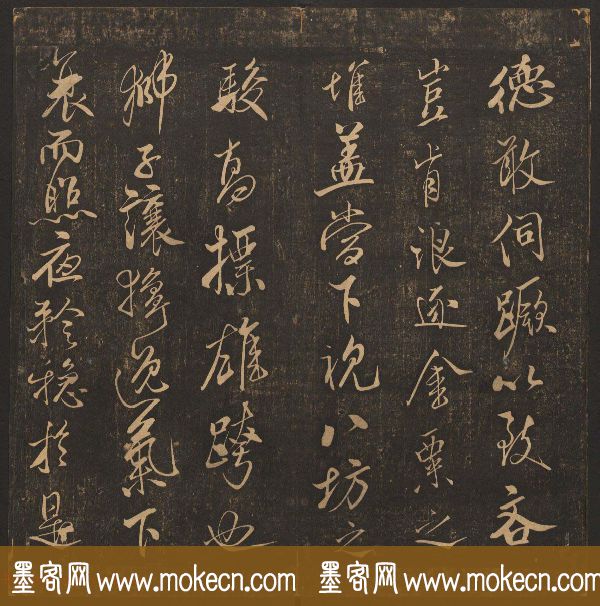 德敢伺蹶以致吝
豈肯浪逐金粟之
堆盖當下視八坊之
駿高標雄跨也
獅子讓獰逸氣下
衰而照夜矜穩於是
墨客网 www.mokecn.com 墨客网 www.mokecn.com